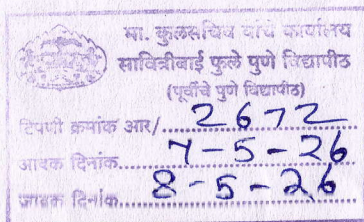 मा. कुलसचिव यांचे कार्यालय
सावित्रीबाई फुले पुणे विद्यापीठ
(पूर्वीचे पुणे विद्यापीठ)
टिपणी क्रमांक आर/ 2672
आवक दिनांक 7-5-26
जावक दिनांक 8-5-26